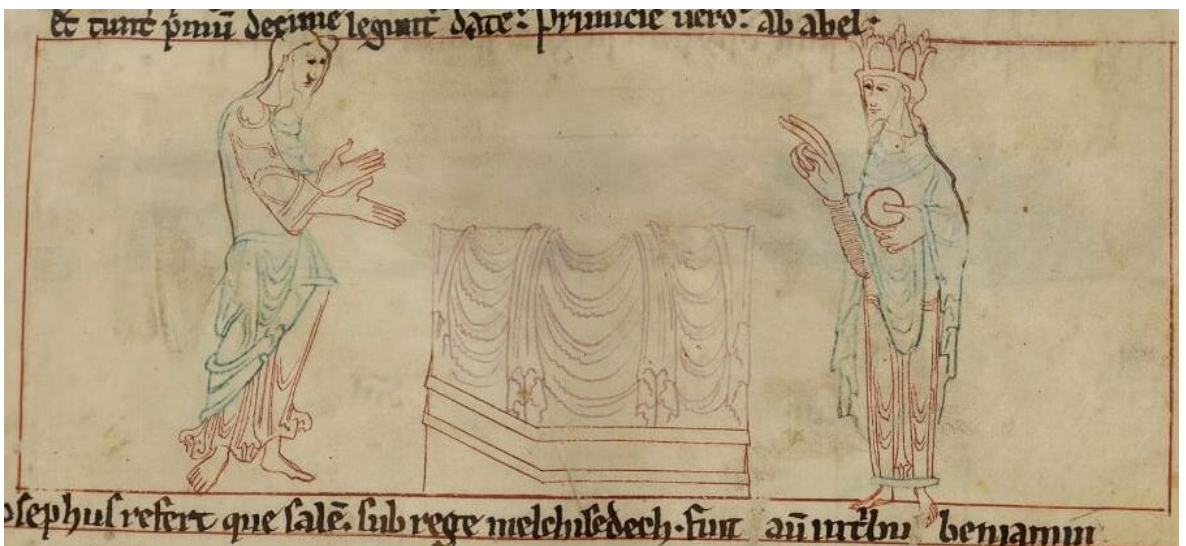 Et tunc p̄mū decime legunt᷑ date. Primicie uero. ab abel.
osephus refert que salē. sub rege melchisedech. fuit beniamin